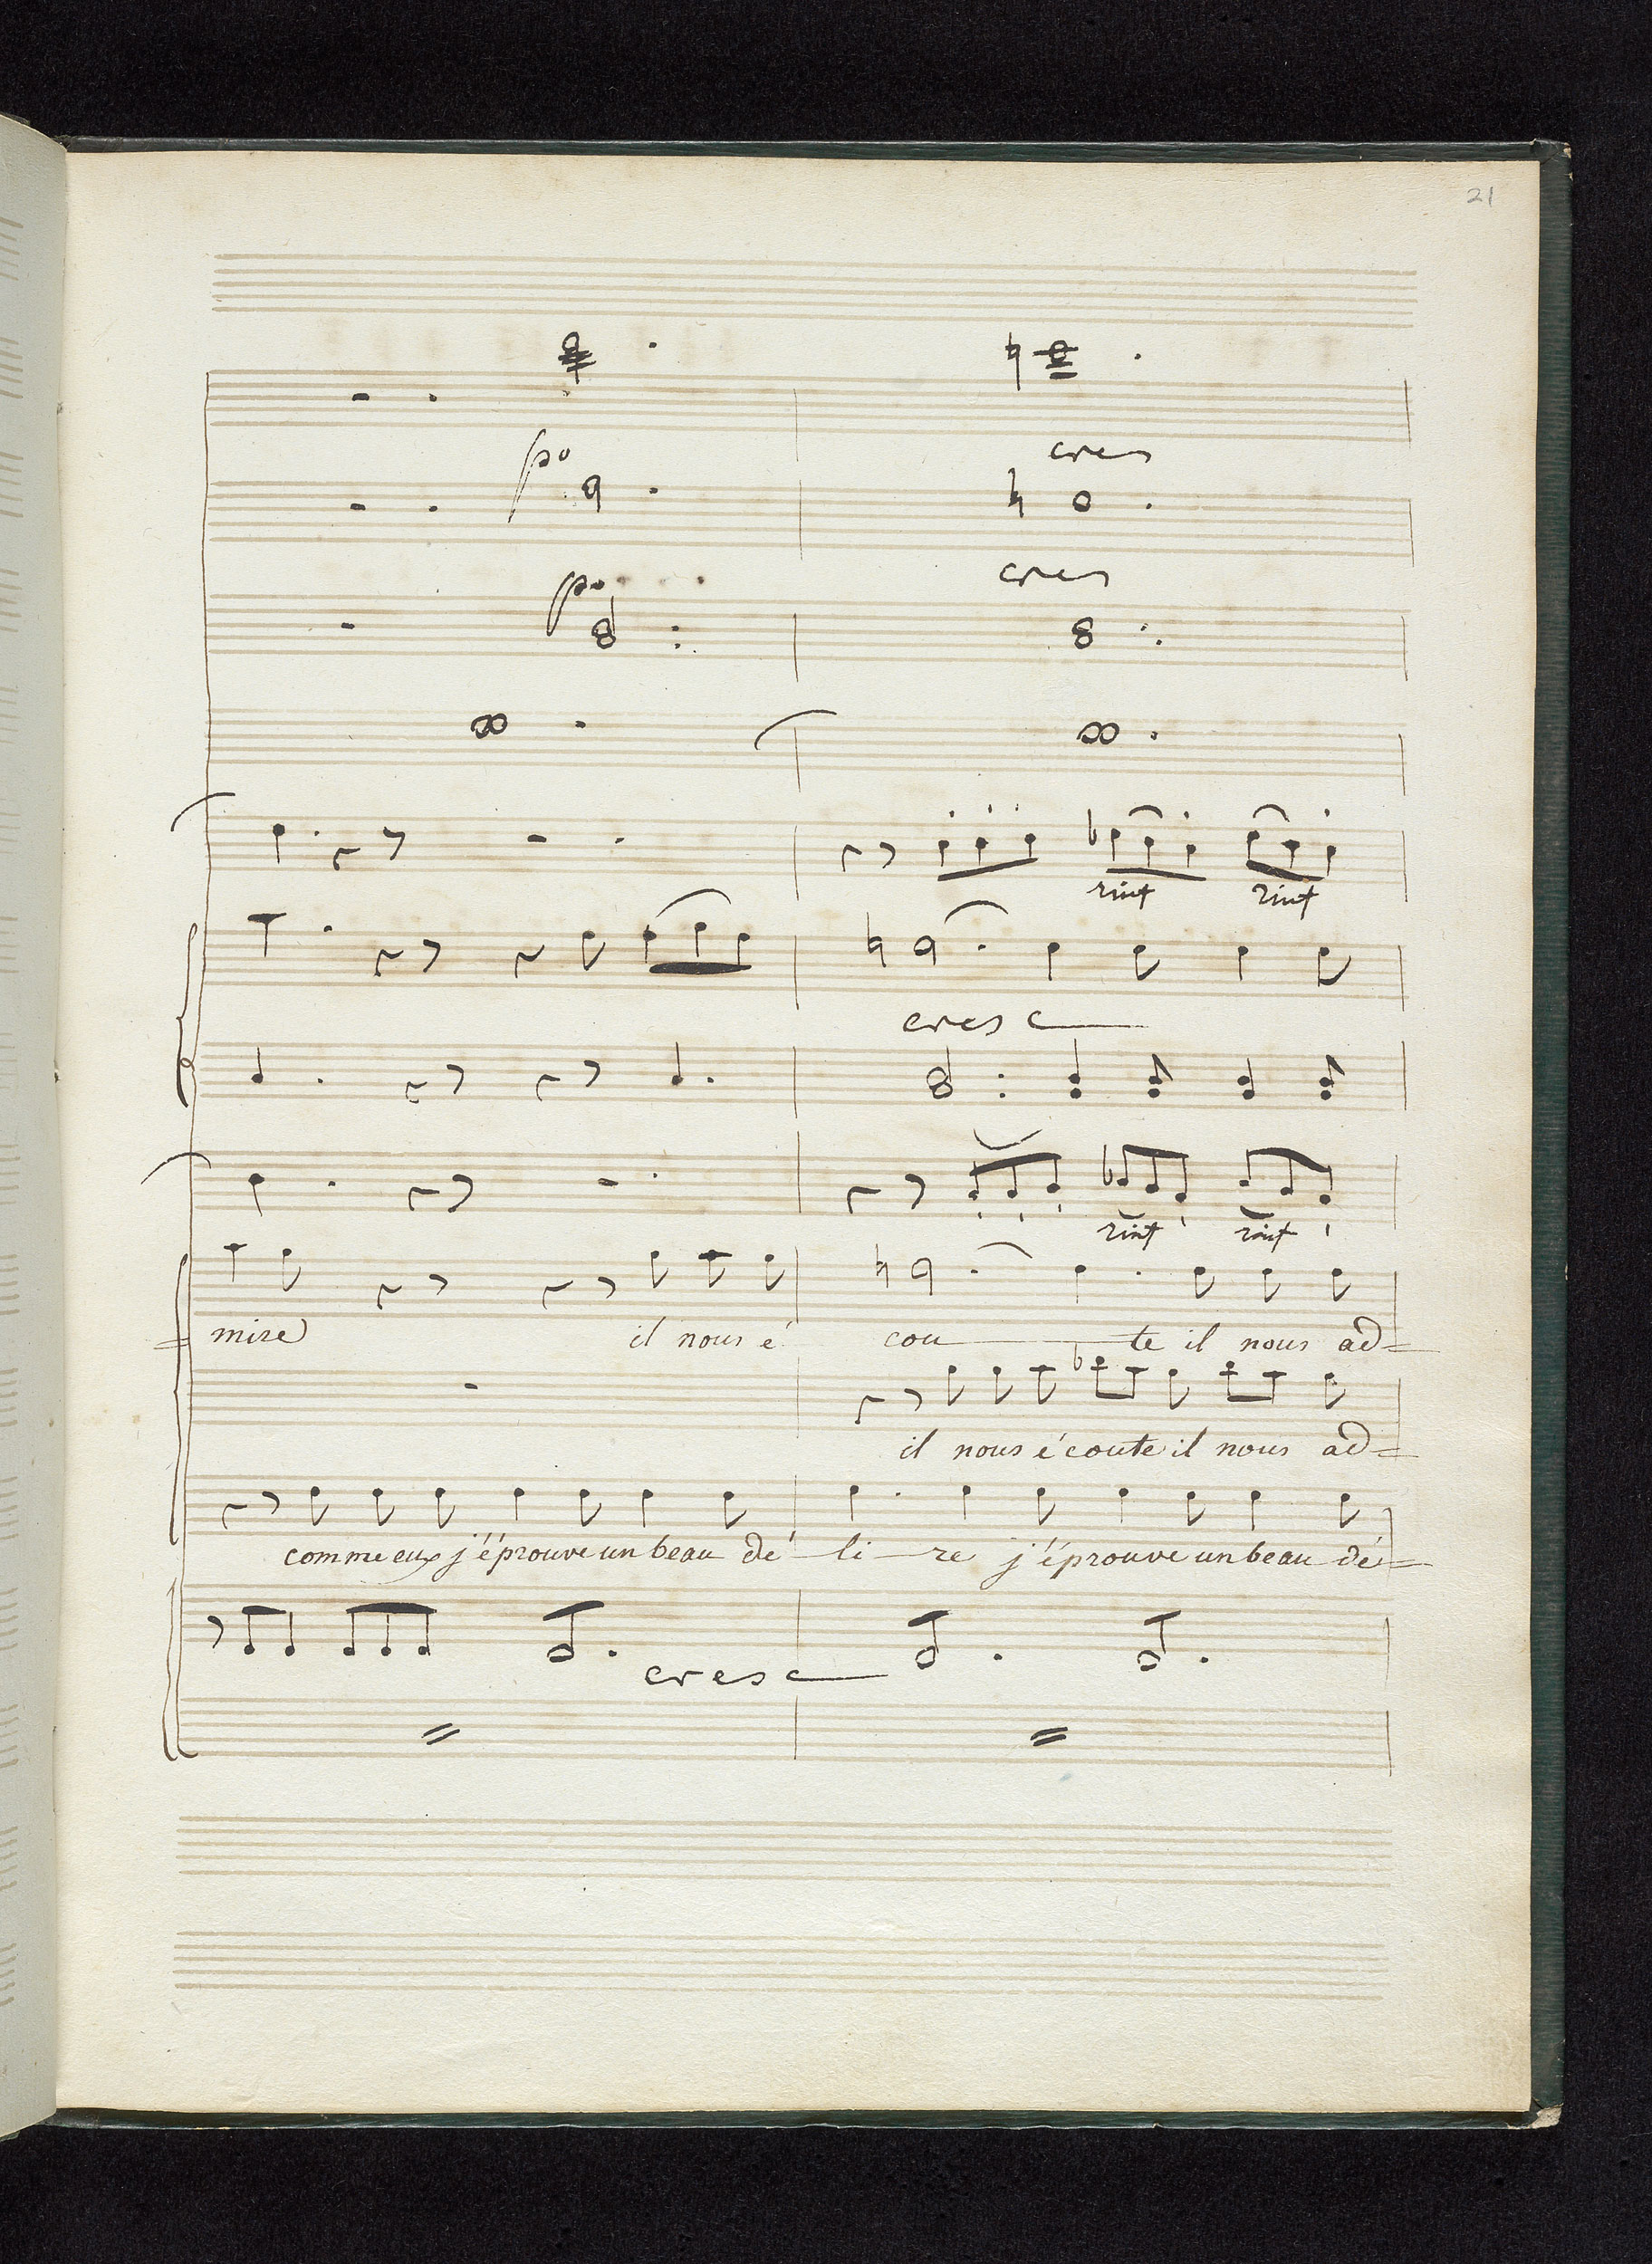 21
po cres
po cres
rinf rinf
cresc
rinf rinf
mire il nous é cou te il nous ad=
il nous écoute il nous ad=
comme eux j'éprouve un beau dé li re j'éprouve un beau dé=
cresc